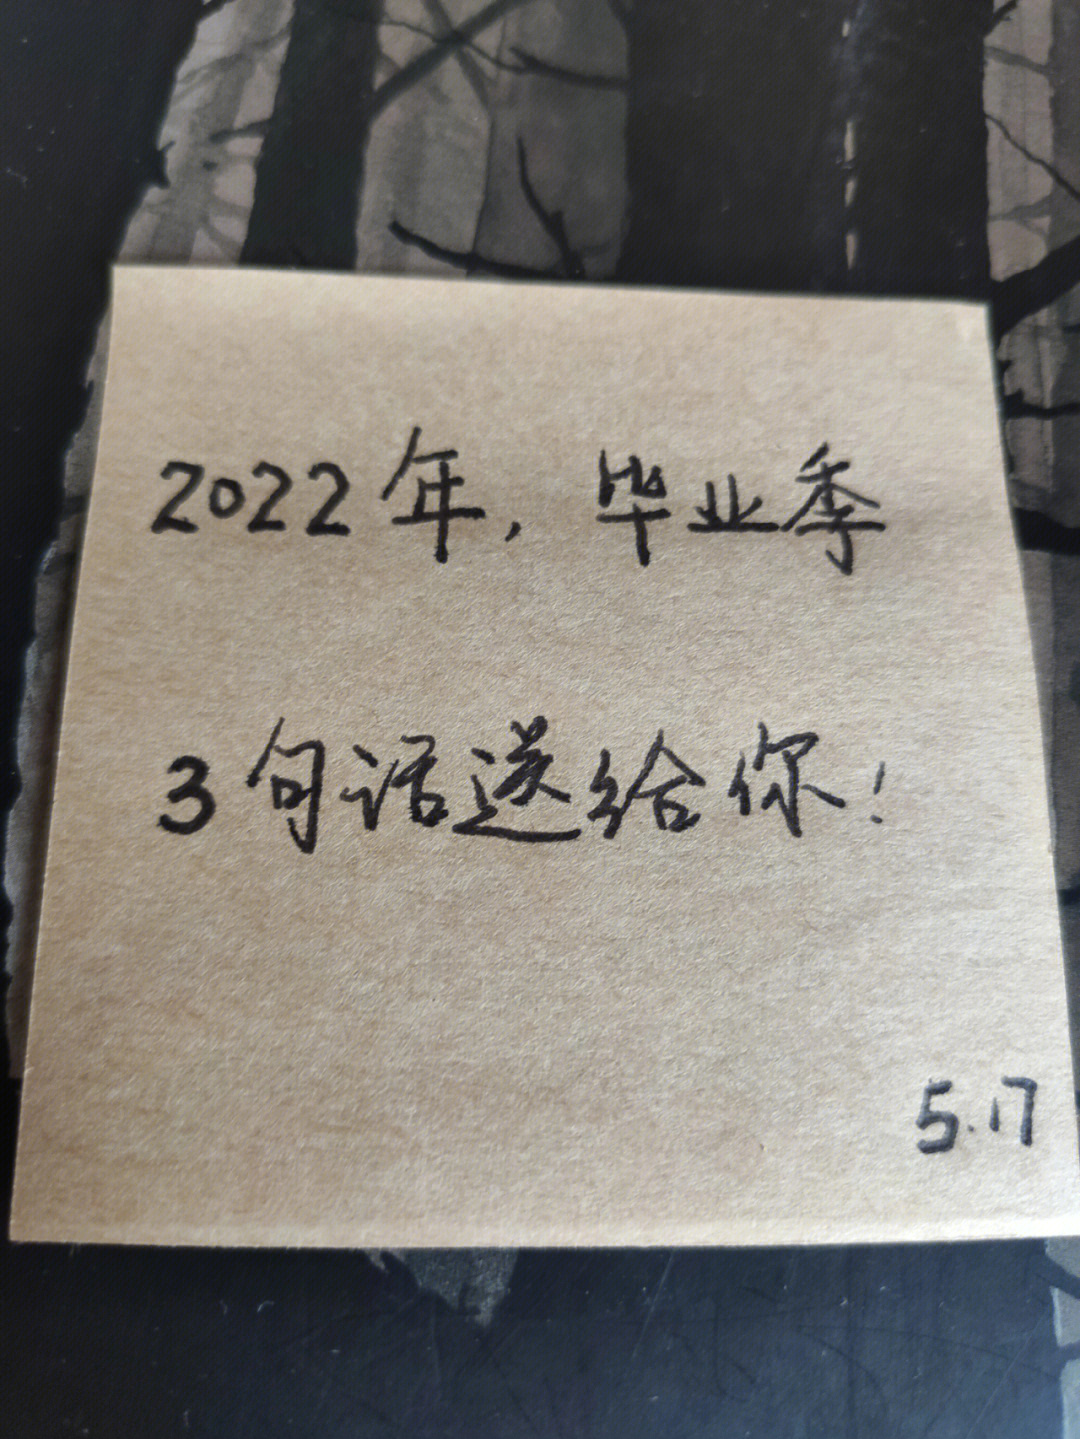 2022年，毕业季
3句话送给你！
5.17